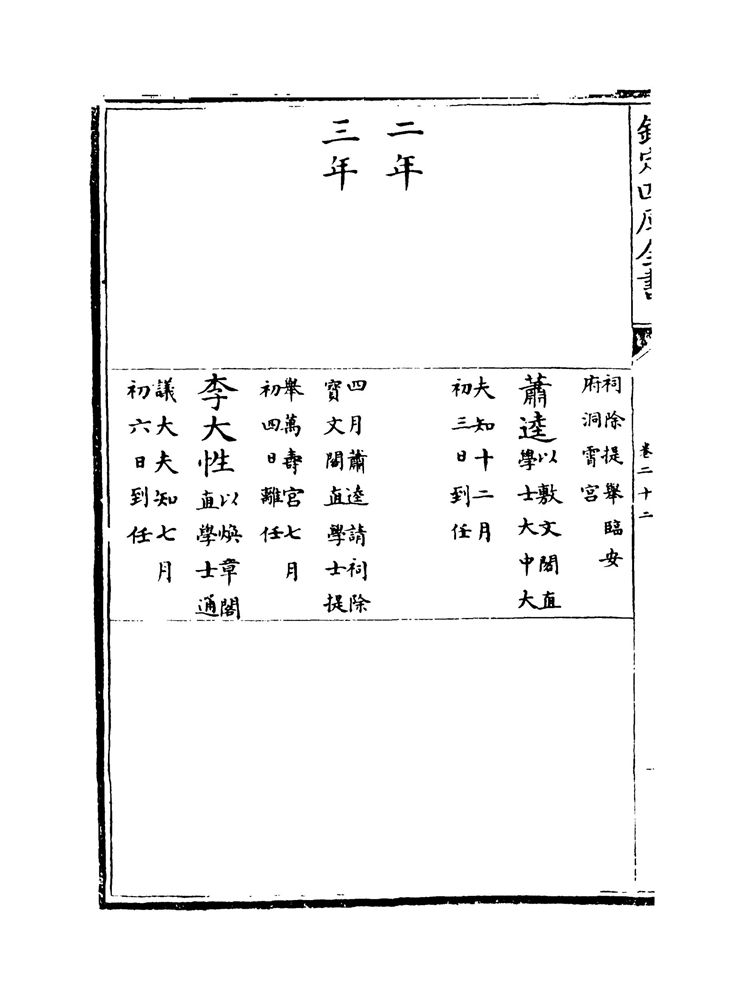 欽定四庫全書
卷二十二
祠除提舉臨安
府洞霄宮
二年
蕭逵
以敷文閣直
學士大中大
夫知十二月
初三日到任
三年
四月蕭逵請祠除
寶文閣直學士提
舉萬壽宮七月
初四日離任
李大性
以煥章閣
直學士通
議大夫知七月
初六日到任